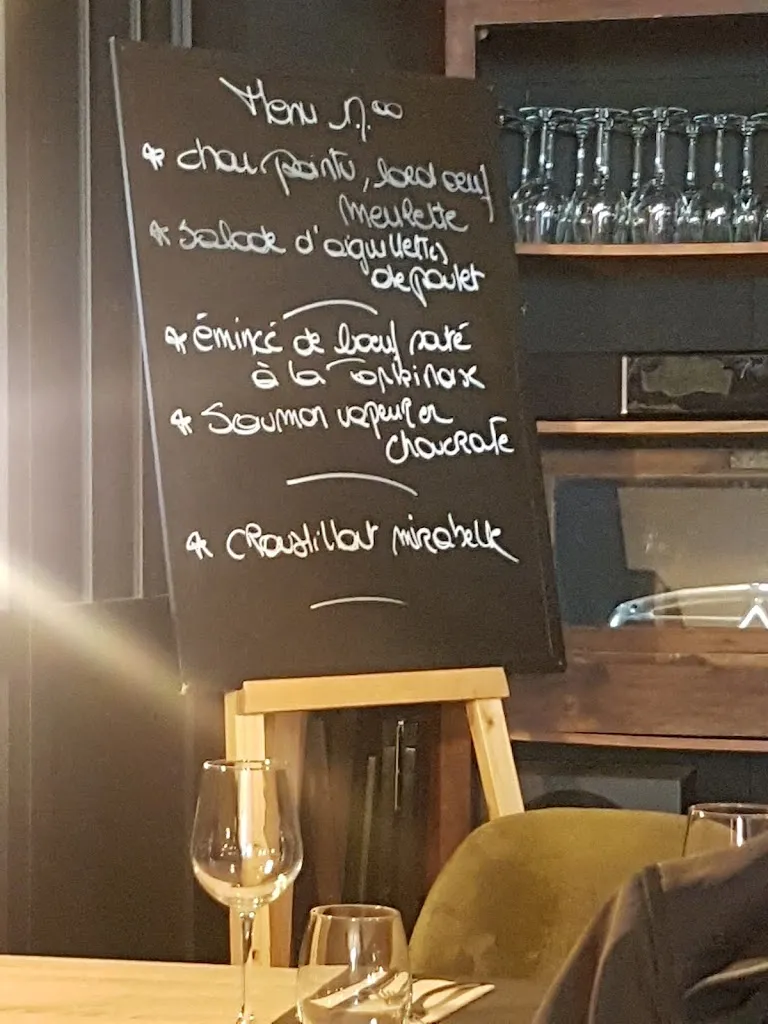 Menu 17.00
* chou pointu, lard oeuf
meurette
* Salade d'aiguillettes
de poulet
* émincé de boeuf saté
à la Tonkinoise
* Saumon vapeur en
choucroute
* croustillant mirabelle